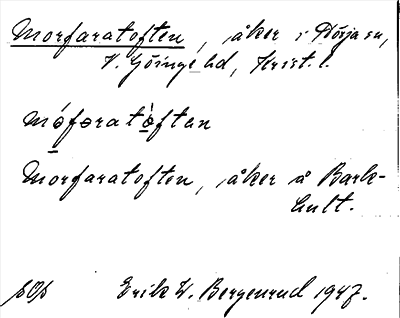 Morfaratoften, åker i Nörja sn,
V. Göinge hd, Krist. l.
mófəratòftən
Morfaratoften, åker å Bark-
hult.
Erik W. Bergenrud 1947.